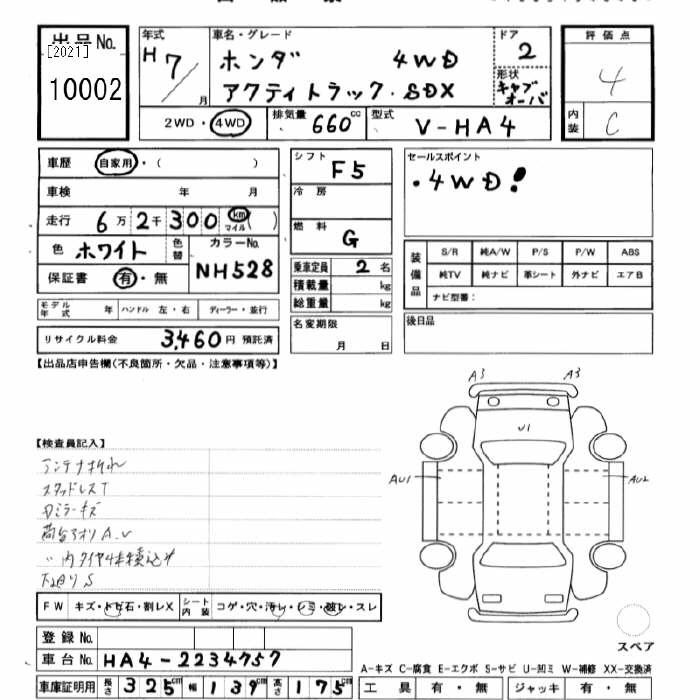 出品No.
[2021]
10002
年式
H7/
月
車名・グレード
ホンダ 4WD
アクティトラック・SDX
ドア
2
形状
キャブオーバ
評価点
4
内装
C
2WD・4WD
排気量 660 cc
型式 V-HA4
車歴 自家用・( )
車検 年 月
走行 6万2千300 km マイル( )
色 ホワイト
色替
カラーNo.
NH528
保証書 有・無
モデル年式 年 ハンドル 左・右 ディーラー・並行
リサイクル料金 3,460円 預託済
シフト F5
冷房
燃料 G
乗車定員 2名
積載量 kg
総重量 kg
名変期限
月 日
セールスポイント
・4WD!
装備品
S/R 純A/W P/S P/W ABS
純TV 純ナビ 革シート 外ナビ エアB
ナビ型番:
後日品
【出品店申告欄(不良箇所・欠品・注意事項等)】
A3 A3
U1
AU1 AU2
【検査員記入】
アンテナ折れ
スタッドレスT
Dミラーキズ
荷台アオリA.U
〃内タイヤ4本積込み
下廻りS
FW キズ・トビ石・割レX シート内装 コゲ・穴・汚レ・シミ・破レ・スレ
登録No.
車台No. HA4-2234757
車庫証明用 長さ 325cm 幅 139cm 高さ 175cm
スペア
A-キズ C-腐食 E-エクボ S-サビ U-凹ミ W-補修 XX-交換済
工具 有・無 ジャッキ 有・無